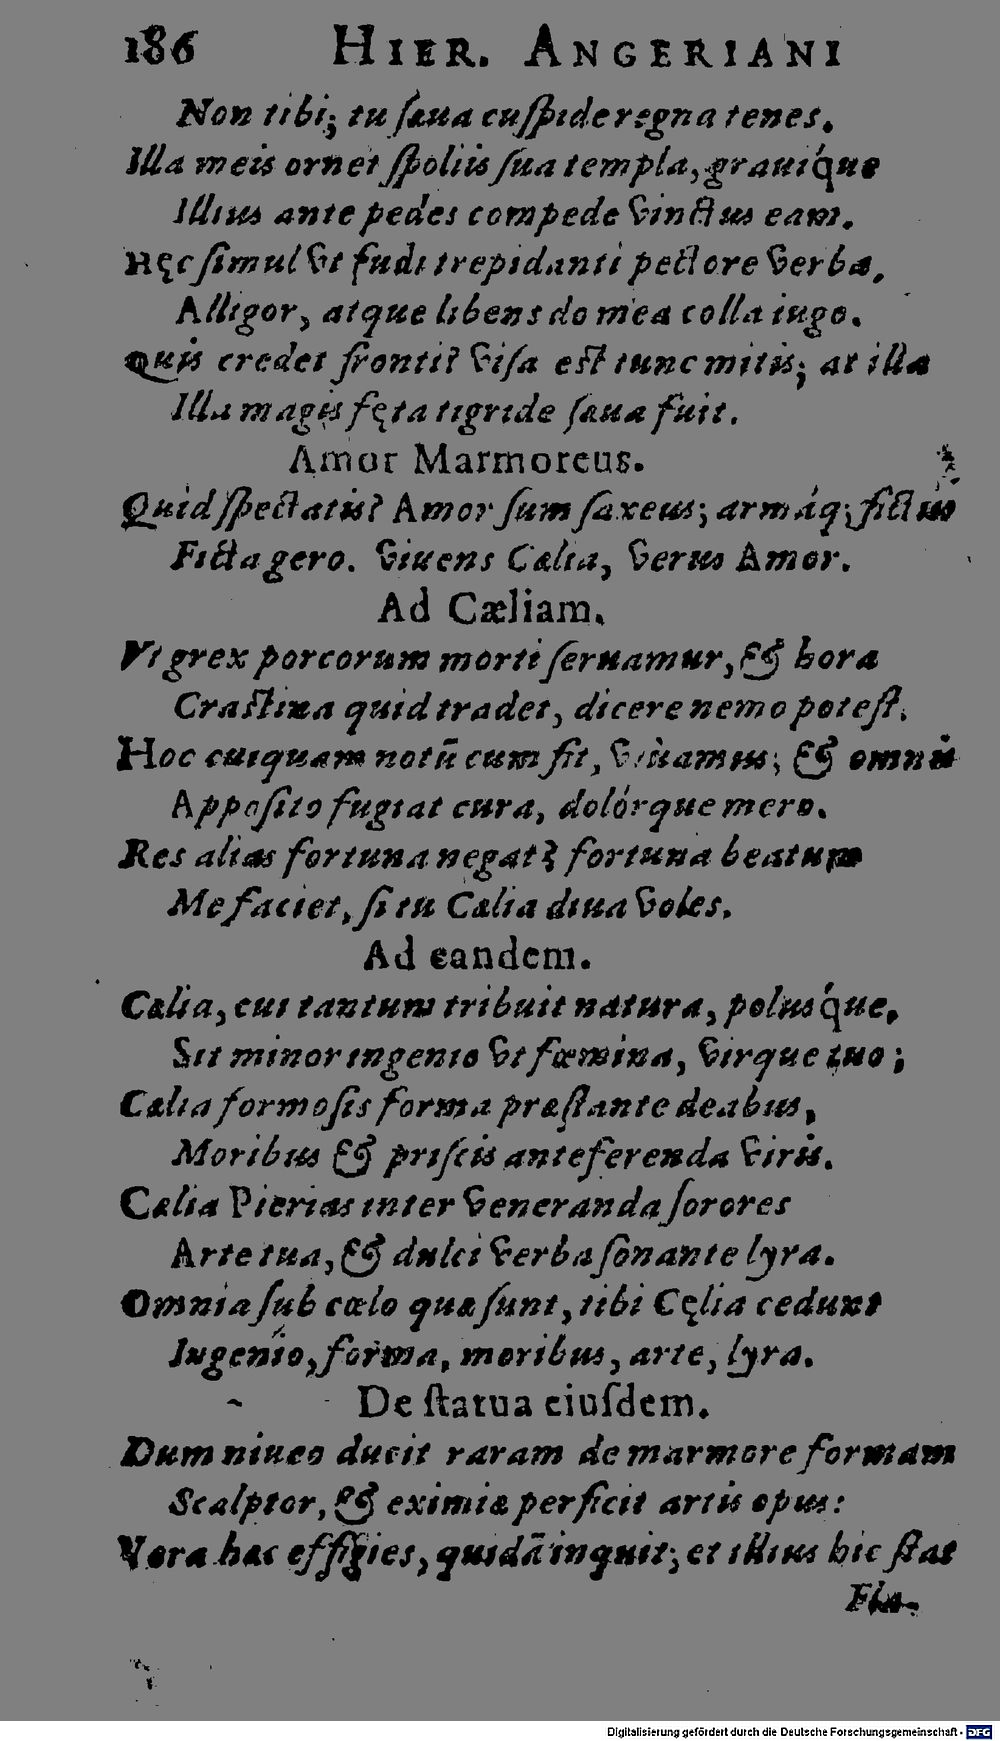 186 HIER. ANGERIANI
Non tibi; tu sæua cuspide regna tenes.
Illa meis ornet spoliis sua templa, grauíque
Illius ante pedes compede vinctus eam.
Hęc simul vt fudi trepidanti pectore verba,
Alligor, atque libens do mea colla iugo.
Quis credet fronti? visa est tunc mitis; at illa
Illa magis fęta tigride sæua fuit.
Amor Marmoreus.
Quid spectatis? Amor sum saxeus; armáq; fictus
Ficta gero. viuens Cælia, verus Amor.
Ad Cæliam.
Vt grex porcorum morti seruamur, & hora
Crastina quid tradet, dicere nemo potest.
Hoc cuiquam notū cum sit, viuamus; & omnis
Apposito fugiat cura, dolórque mero.
Res alias fortuna negat? fortuna beatum
Me faciet, si tu Cælia diua voles.
Ad eandem.
Cælia, cui tantum tribuit natura, polusq́ue,
Sit minor ingenio vt fœmina, virque tuo;
Cælia formosis forma præstante deabus,
Moribus & priscis anteferenda viris.
Cælia Pierias inter veneranda sorores
Arte tua, & dulci verba sonante lyra.
Omnia sub cœlo quæ sunt, tibi Cęlia cedunt
Ingenio, forma, moribus, arte, lyra.
De statua eiusdem.
Dum niueo ducit raram de marmore formam
Scalptor, & eximiæ perficit artis opus:
Vera hæc effigies, quidā inquit; et illius hic stat
Fla-
Digitalisierung gefördert durch die Deutsche Forschungsgemeinschaft - DFG